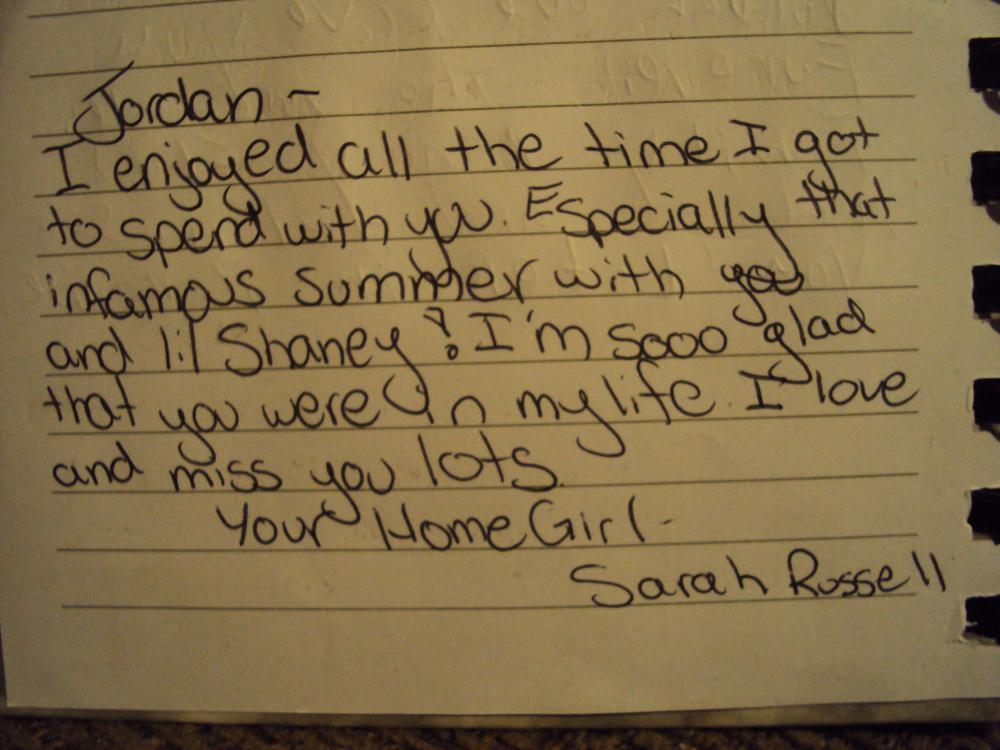 Jordan -
I enjoyed all the time I got
to spend with you. Especially that
infamous summer with you
and lil Shaney! I'm sooo glad
that you were in my life. I love
and miss you lots.
Your HomeGirl -
Sarah Russell